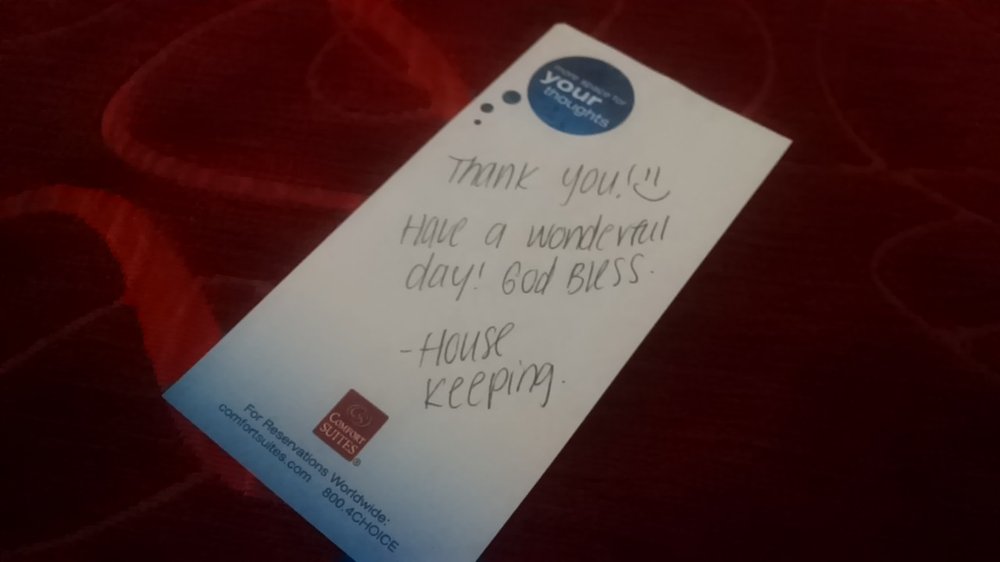 more space for
your
thoughts
Thank you!
Have a wonderful
day! God Bless.
- House
keeping.
COMFORT
SUITES®
For Reservations Worldwide:
comfortsuites.com 800.4CHOICE